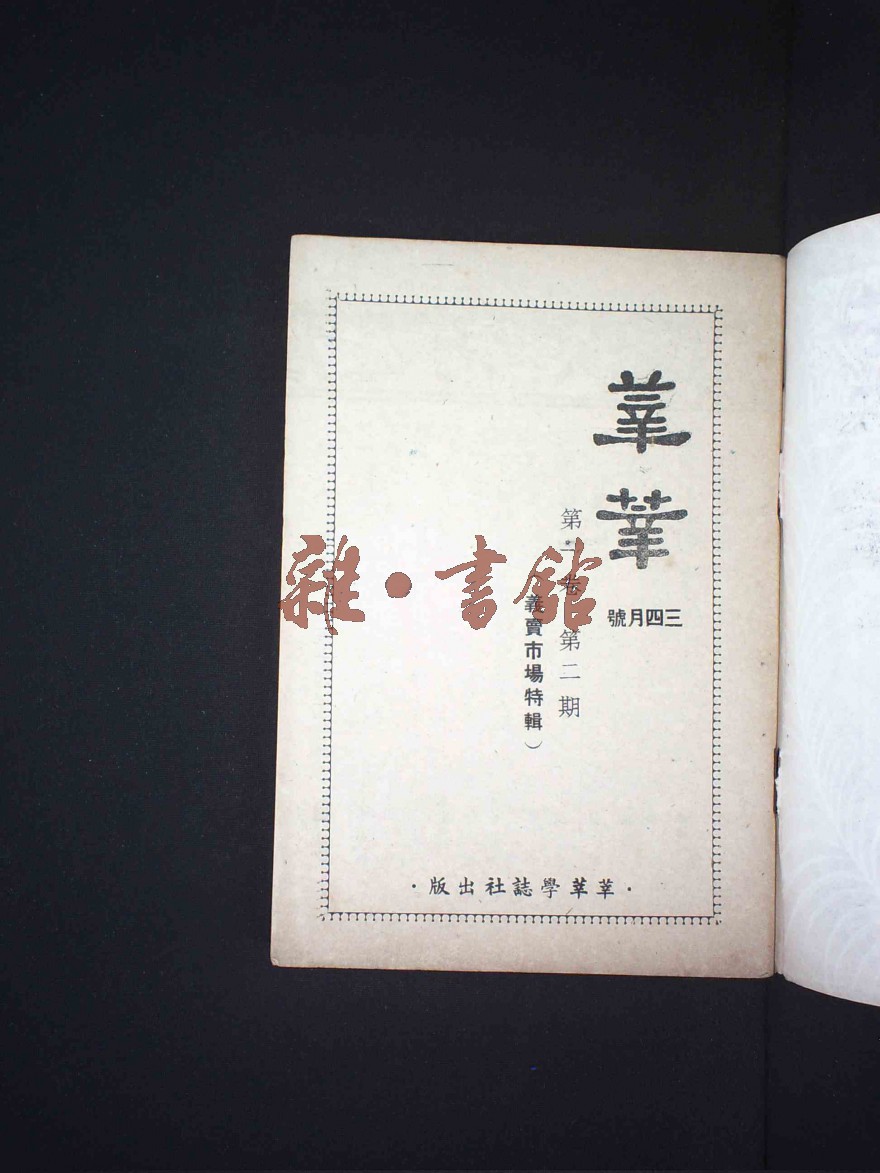 莘莘
三四月號
第卷 第二期
義賣市場特輯）
·莘莘學誌社出版·
雜·書館